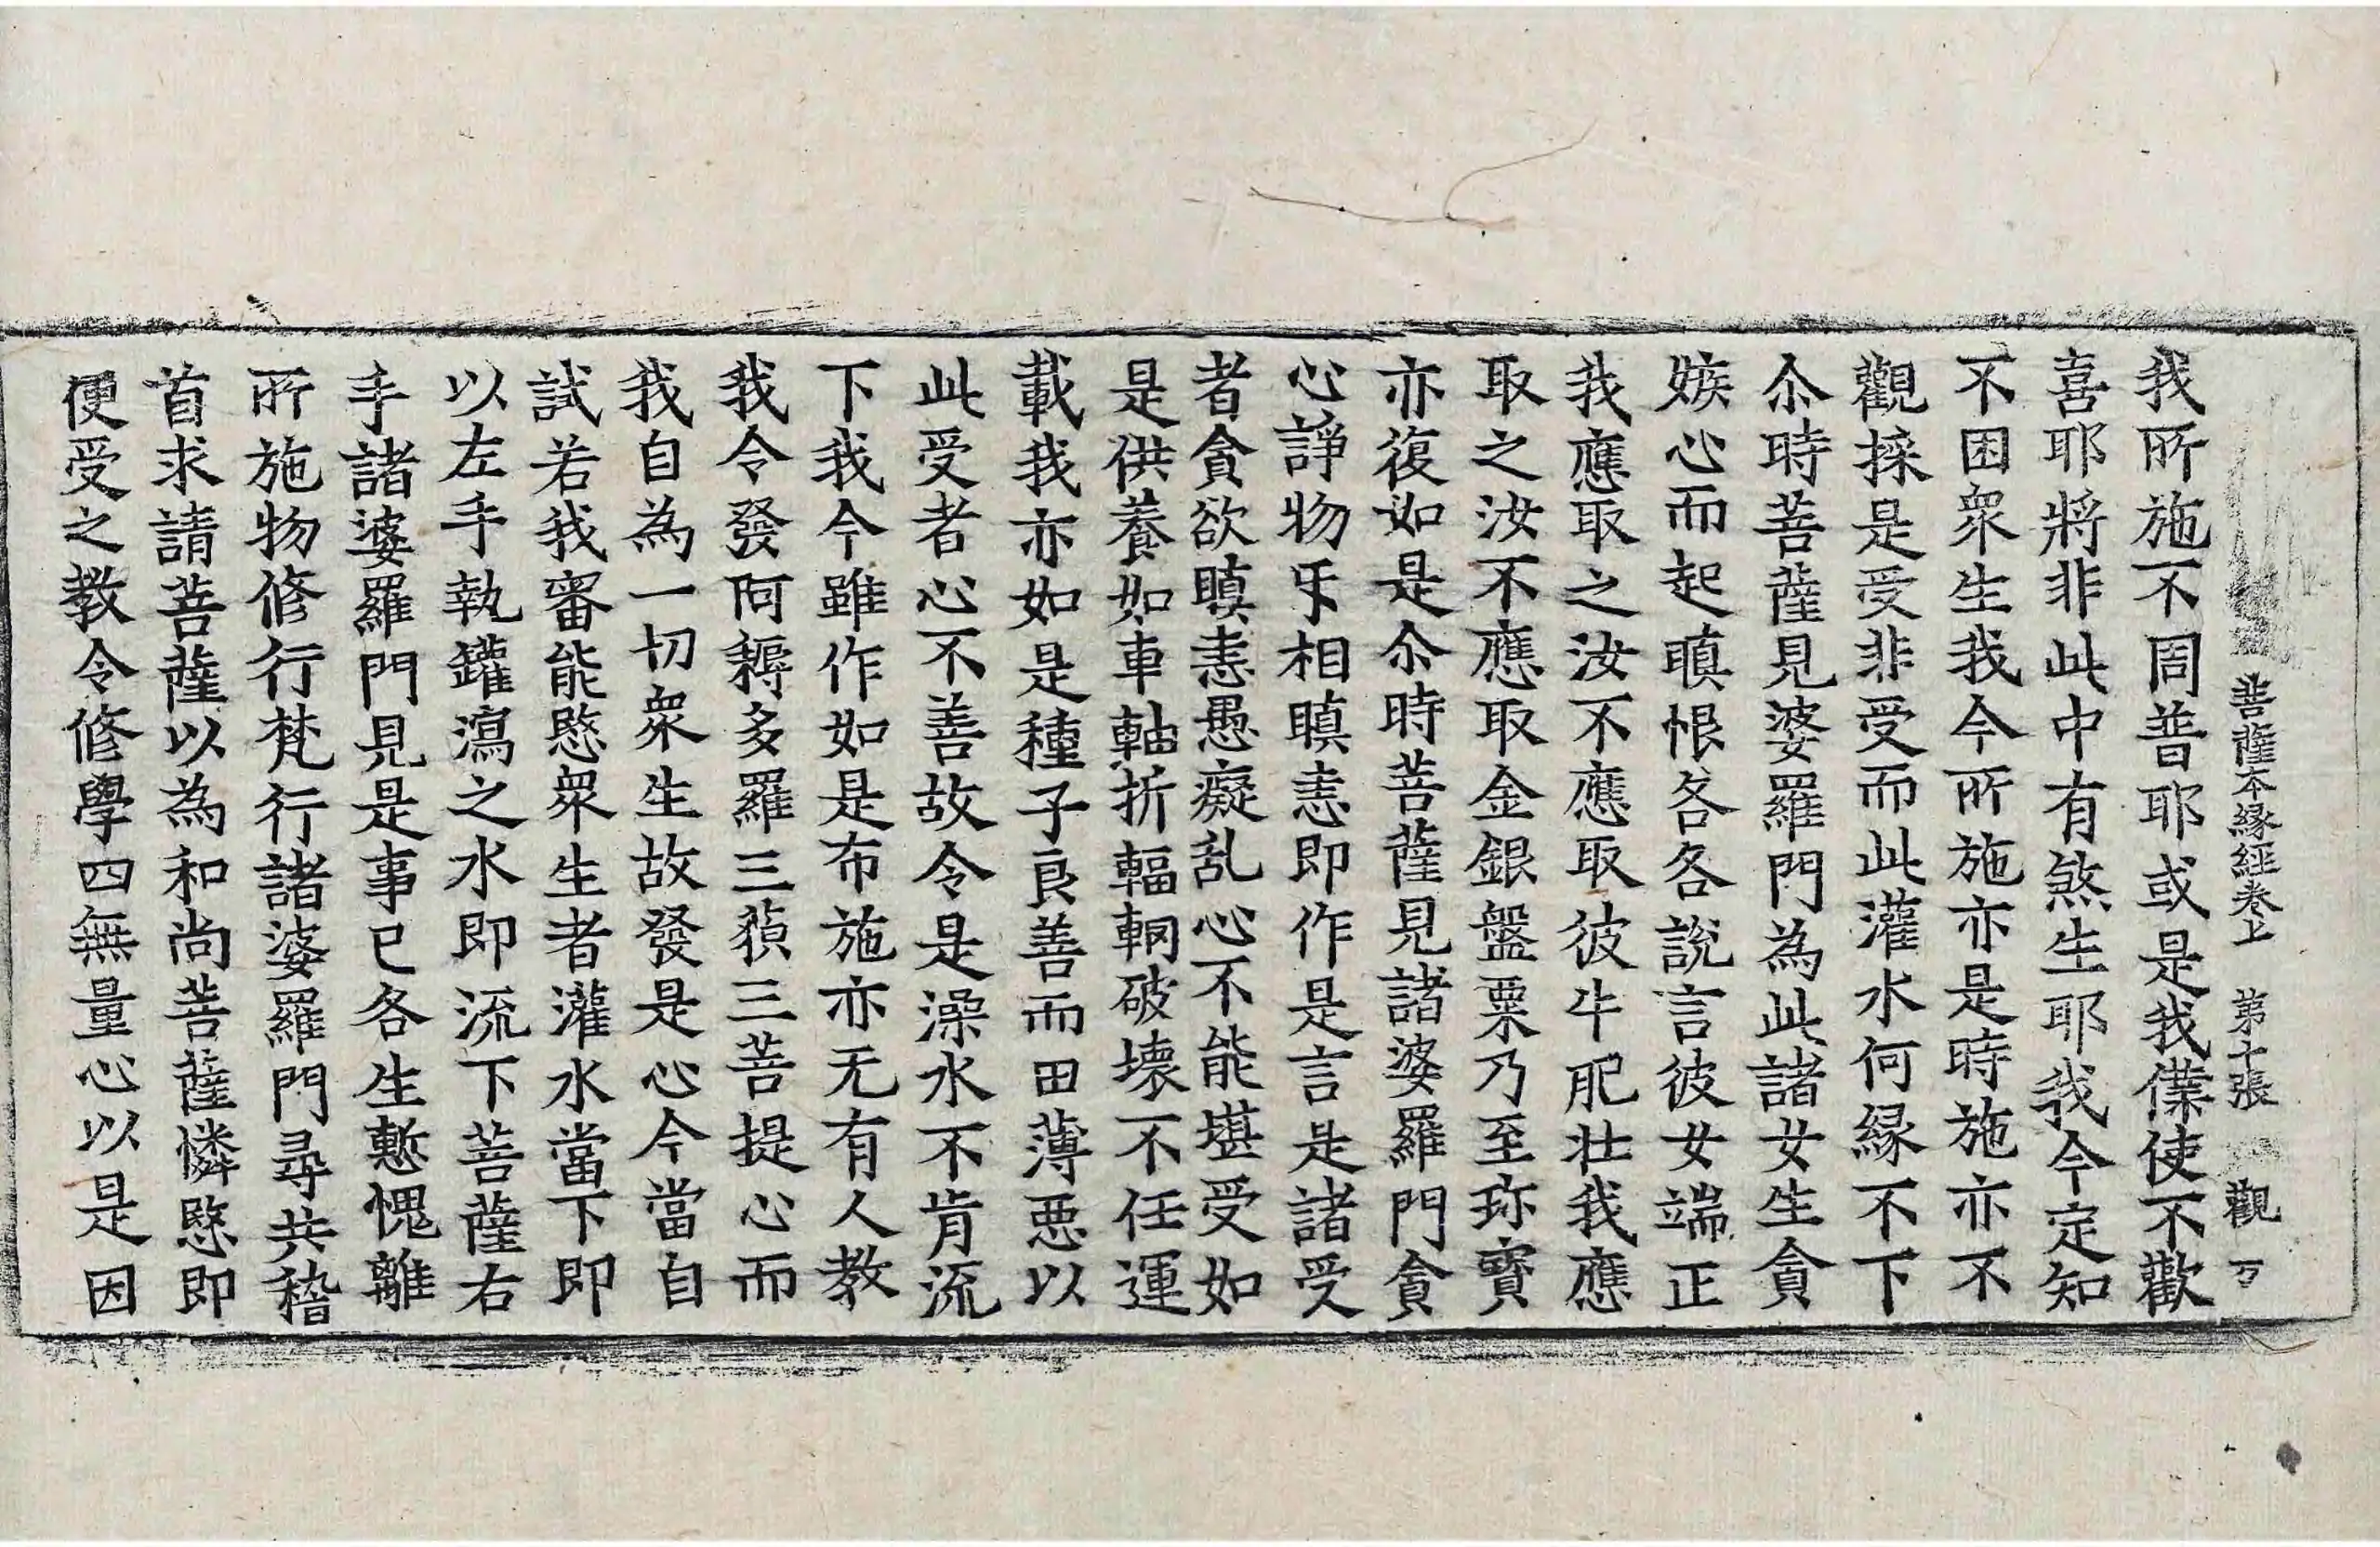 菩薩本縁經卷上 第十張 觀
我所施不周普耶或是我僕使不歡
喜耶將非此中有煞生耶我今定知
不困衆生我今所施亦是時施亦不
觀採是受非受而此灌水何縁不下
尒時菩薩見婆羅門為此諸女生貪
嫉心而起瞋恨各各說言彼女端正
我應取之汝不應取彼牛肥壯我應
取之汝不應取金銀盤粟乃至珎寳
亦復如是尒時菩薩見諸婆羅門貪
心諍物㸦相瞋恚即作是言是諸受
者貪欲瞋恚愚癡乱心不能堪受如
是供養如車軸折輻輞破壞不任運
載我亦如是種子良善而田薄惡以
此受者心不善故令是澡水不肯流
下我今雖作如是布施亦无有人教
我令發阿耨多羅三藐三菩提心而
我自為一切衆生故發是心今當自
試若我審能愍衆生者灌水當下即
以左手執罐瀉之水即流下菩薩右
手諸婆羅門見是事已各生慙愧離
所施物修行梵行諸婆羅門尋共稽
首求請菩薩以為和尚菩薩憐愍即
便受之教令修學四無量心以是因